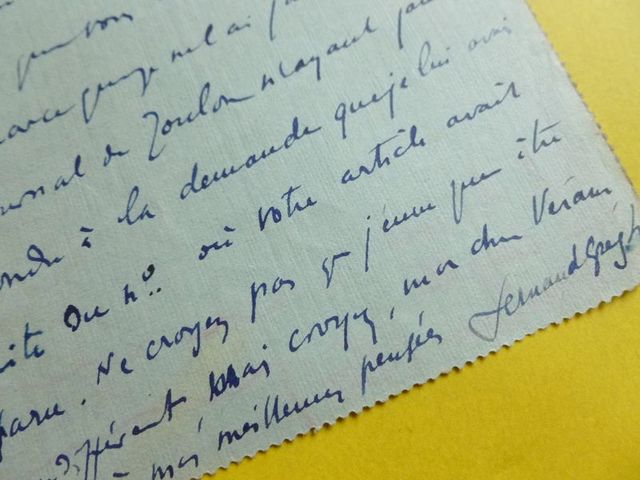 pour vous
parce que je ne l'ai
journal de Toulon n'ayant
à la demande que je lui avais
du n° où votre article avait
paru. Ne croyez pas q. j'eusse pu être
indifférent mais croyez, mon cher Véran
à mes meilleures pensées Fernand Gregh